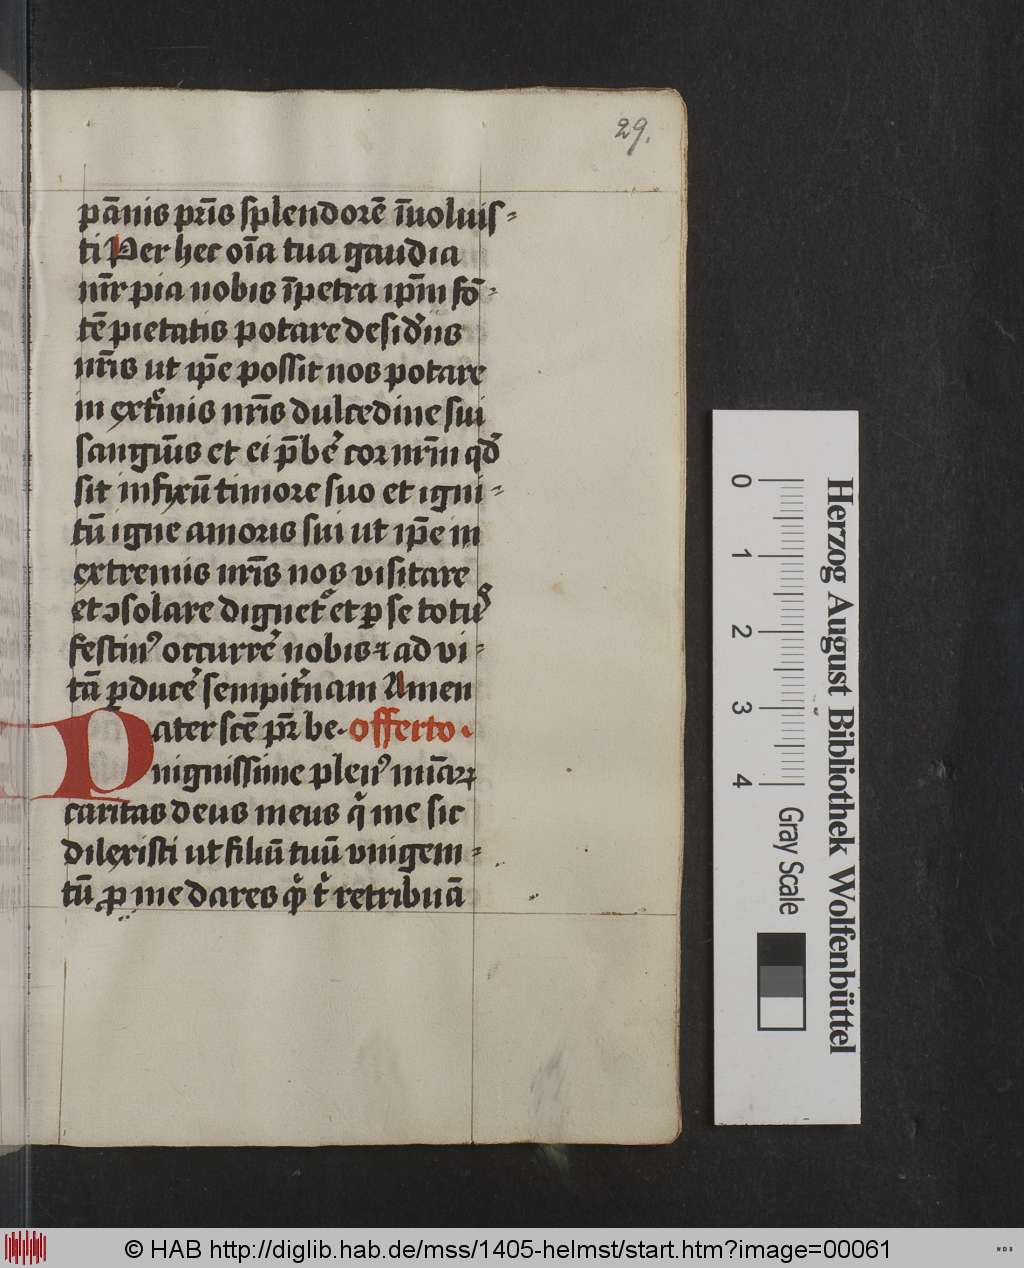 29.
pānis pr̄is splendorē īuoluis⸗
ti Per hec oīa tua gaudia
mr̄ pia nobis īpetra ip̄m fō⸗
tē pietatis potare desid̓iis
nr̄is ut ip̄e possit nos potare
in ext̓mis nr̄is dulcedine sui
sanguīs et ei p̄be̓ cor nr̄m qd̓
sit infixū timore suo et igni⸗
tū igne amoris sui ut ip̄e in
extremis nr̄is nos visitare
et ꝯsolare dignet̓ et ꝑ se totu᷒
festin᷒ occurre̓ nobis ⁊ ad vi⸗
tā ꝑduce̓ sempit̓nam Amen
Pater scē pr̄ be· offerto·
nignissime plen᷒ mīaꝝ
caritas deus meus q̓ me sic
dilexisti ut filiū tuū vnigeni⸗
tū ꝓ me dares q̓ t̓ retribuā
0 1 2 3 4
Gray Scale
Herzog August Bibliothek Wolfenbüttel
© HAB http://diglib.hab.de/mss/1405-helmst/start.htm?image=00061